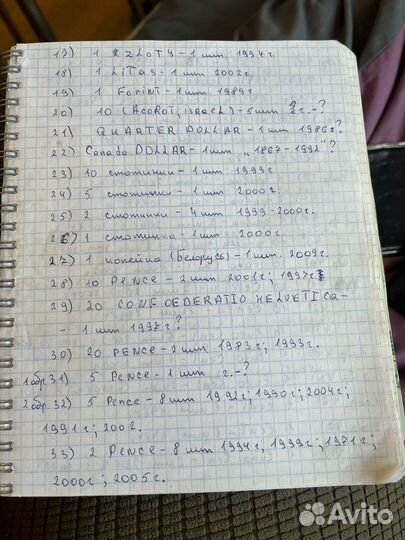 17) 1 ZZLOTY - 1 шт 1994г.
18) 1 LiTas - 1 шт 2002г.
19) 1 Forint - 1 шт 1989г.
20) 10 (AGoRoT, israeL) - 5 шт г.-?
21) QUARTER DOLLAR - 1 шт 1986г?
22) Canada DOLLAR - 1 шт "1867-1992"?
23) 10 стотинки - 1 шт 1999г
24) 5 стотинки - 1 шт 2000г.
25) 2 стотинки - 4 шт 1999-2000г.
26) 1 стотинка - 1 шт 2000г.
27) 1 копейка (Белорусь) - 1 шт. 2009г.
28) 10 Pence - 2 шт 2001г; 1997г
29) 20 CONFOEDERATIO HELVETICA -
- 1 шт 1997г?
30) 20 PENCE - 2 шт 1983г; 1993г.
1 обр. 31) 5 Pence - 1 шт г.-?
2 обр. 32) 5 Pence - 8 шт 1992г; 1990г; 2004г;
1991г; 2002.
33) 2 Pence - 8 шт 1994г, 1999г; 1971г;
2000г; 2005г.
Avito